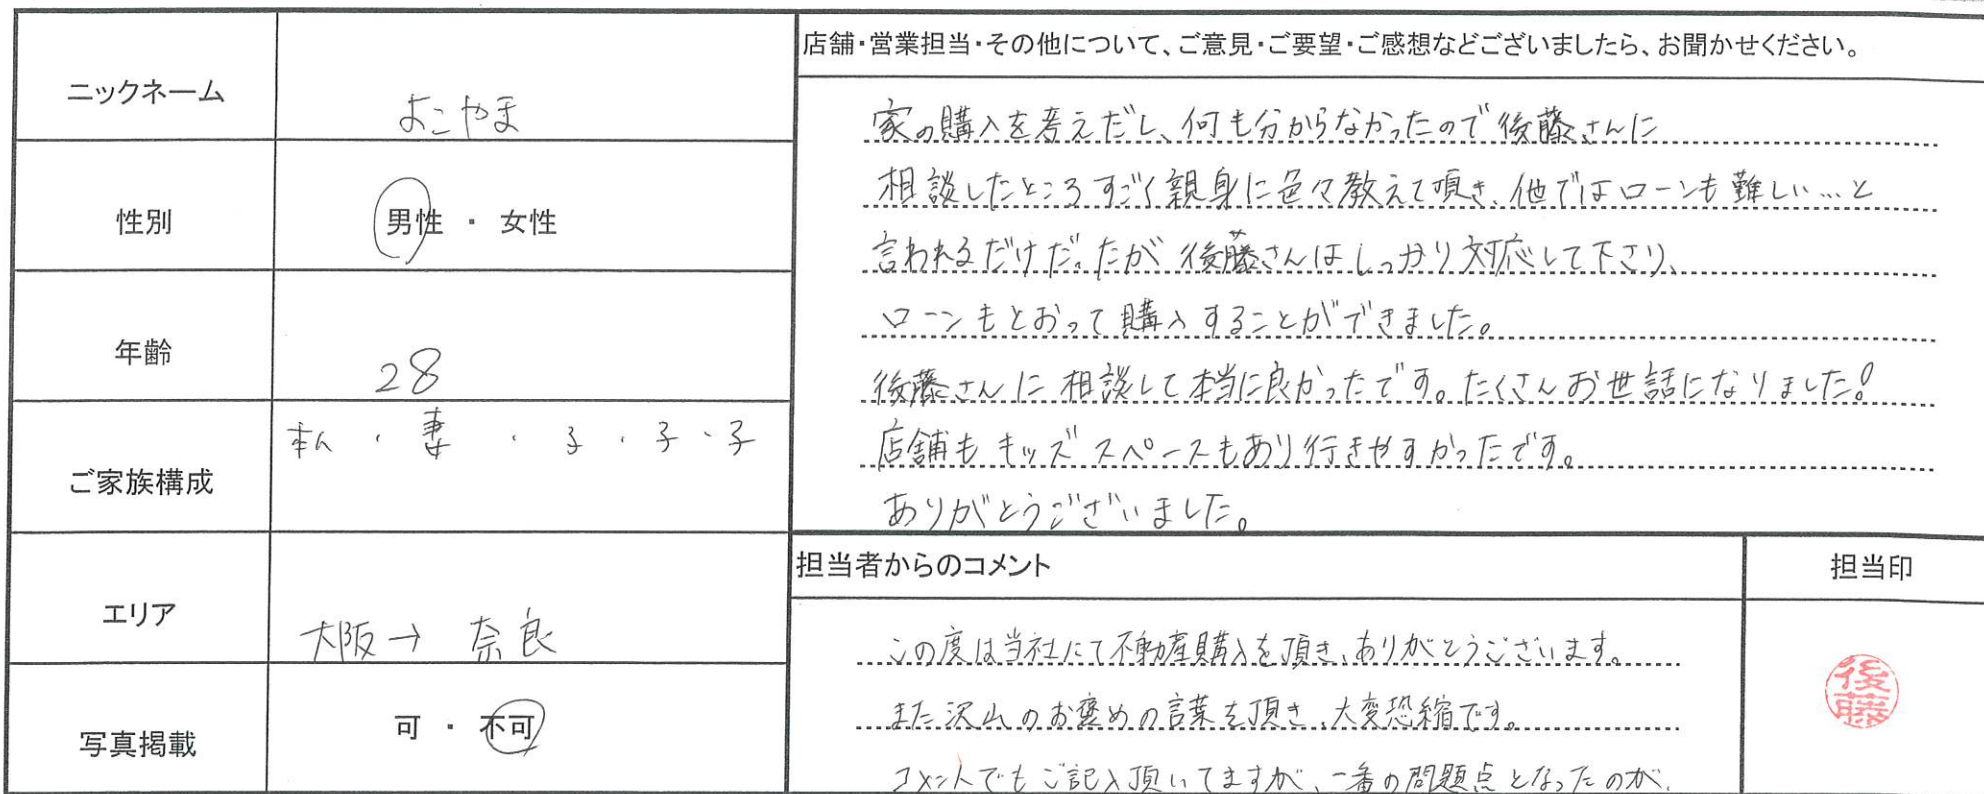 ニックネーム よこやま
性別 男性 ・ 女性
年齢 28
ご家族構成 本人 ・ 妻 ・ 子 ・ 子 ・ 子
エリア 大阪→ 奈良
写真掲載 可 ・ 不可
店舗・営業担当・その他について、ご意見・ご要望・ご感想などございましたら、お聞かせください。
家の購入を考えだし、何も分からなかったので後藤さんに
相談したところすごく親身に色々教えて頂き、他ではローンも難しい…と
言われるだけだったが後藤さんはしっかり対応して下さり、
ローンもとおって購入することができました。
後藤さんに相談して本当に良かったです。たくさんお世話になりました!
店舗もキッズスペースもあり行きやすかったです。
ありがとうございました。
担当者からのコメント
この度は当社にて不動産購入を頂き、ありがとうございます。
また沢山のお褒めの言葉を頂き、大変恐縮です。
コメントでもご記入頂いてますが、一番の問題点となったのが、
担当印
後藤